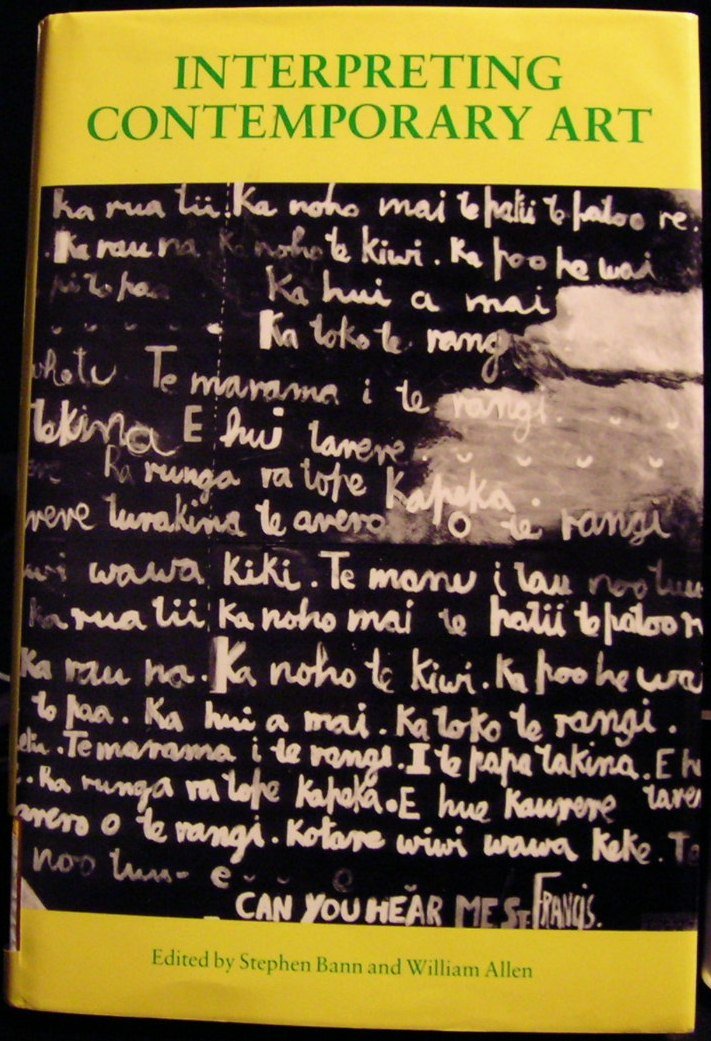 INTERPRETING
CONTEMPORARY ART
Ka rua tii. Ka noho mai te patii te patoo re.
Ka rau na Ka noho te kiwi. Ka poo he wai
pi to paa Ka hui a mai
Ka toko te rangi
whetu Te marama i te rangi.
takina E hui tarere.
Ra runga ra tope Kapeka.
rere turakina te arero O te rangi
wi wawa kiki. Te manu i tau noo tuu
Ka rua tii Ka noho mai te patii te patoo r
Ka rau na. Ka noho te kiwi. Ka poo he wa
to paa. Ka hui a mai. Ka toko te rangi.
etu. Te marama i te rangi. I te papa takina. E h
. Ra runga ra tope Kapeka. E hue Kaurere tarer
arero o te rangi. Kotare wiwi wawa keke. Te
noo tuu- e
CAN YOU HEAR ME ST FRANCIS.
Edited by Stephen Bann and William Allen